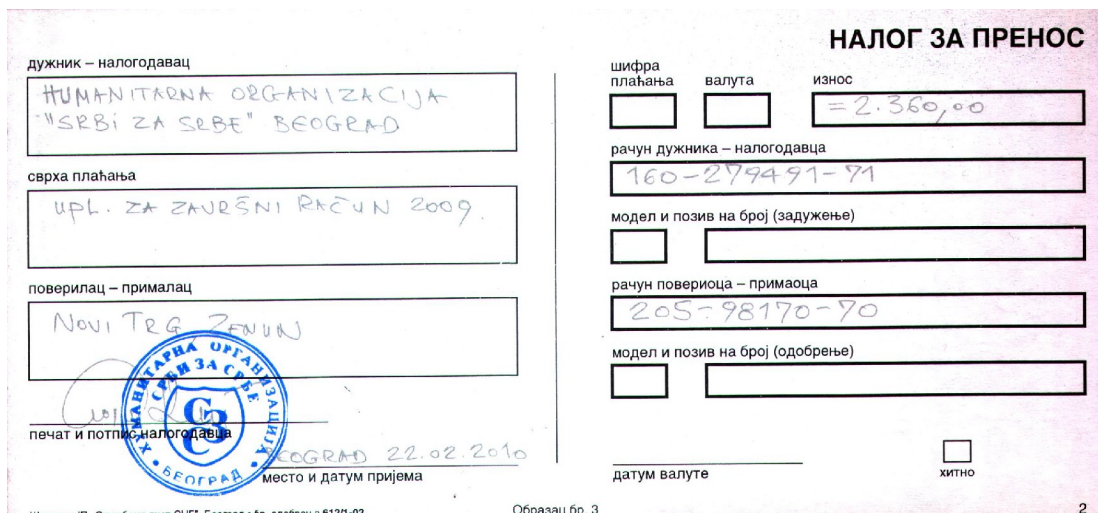 НАЛОГ ЗА ПРЕНОС
дужник – налогодавац
HUMANITARNA ORGANIZACIJA
"SRBI ZA SRBE" BEOGRAD
сврха плаћања
UPL. ZA ZAVRŠNI RAČUN 2009.
поверилац – прималац
NOVI TRG ZEMUN
ХУМАНИТАРНА ОРГАНИЗАЦИЈА
СРБИ ЗА СРБЕ
СЗС
БЕОГРАД
печат и потпис налогодавца
BEOGRAD 22.02.2010
место и датум пријема
шифра
плаћања валута износ
=2.360,00
рачун дужника – налогодавца
160-279491-71
модел и позив на број (задужење)
рачун повериоца – примаоца
205-98170-70
модел и позив на број (одобрење)
датум валуте
хитно
Образац бр. 3
2